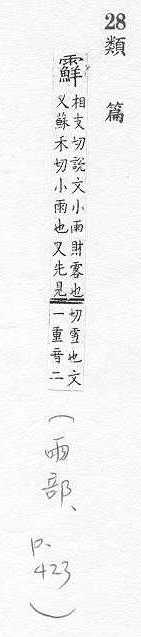 28 類篇
䨘
相支切說文小雨財零也
又蘇禾切小雨也又先見
切雪也文
一重音二
(雨部、
p.423)